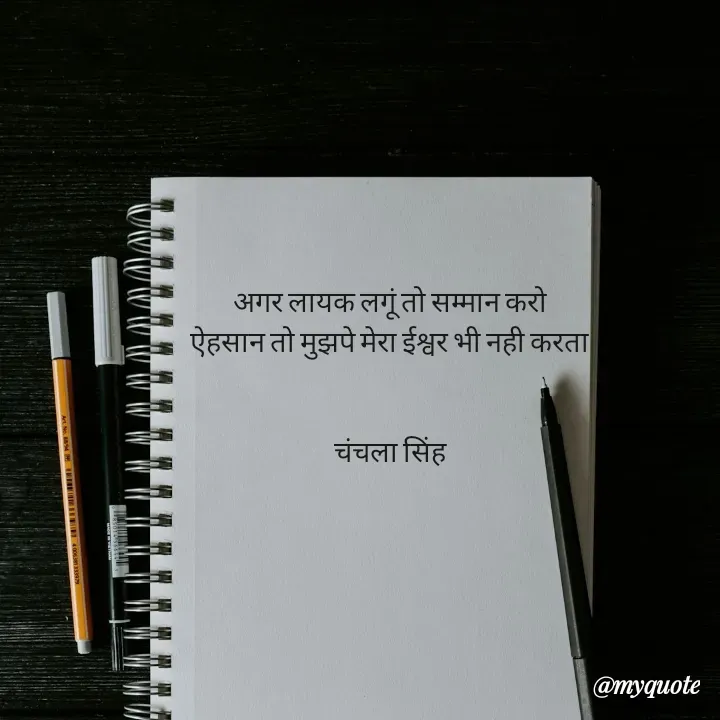 अगर लायक लगूं तो सम्मान करो
ऐहसान तो मुझपे मेरा ईश्वर भी नही करता
चंचला सिंह
@myquote